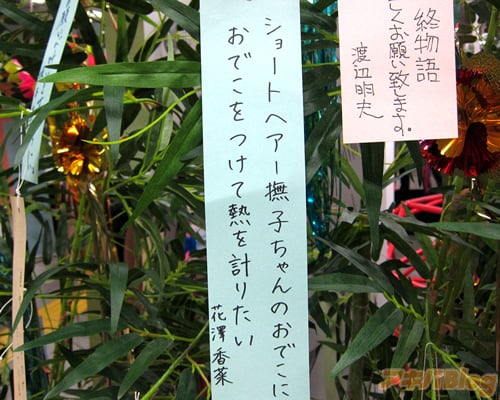 終物語
しくお願い致します。
渡辺明夫
ショートヘアー撫子ちゃんのおでこに
おでこをつけて熱を計りたい
花澤香菜
アキバBlog